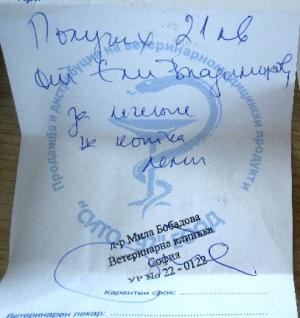 Получих 21 лв
от Ели Владимирова,
за лечение
на котка
Продажба и дистрибуция на ветеринарномедицински продукти
"СИТО ООД
д-р Мила Бобадова
Ветеринарна клиника
София
УР No 22 - 0122
Карентен срок:
Ветеринарен лекар: